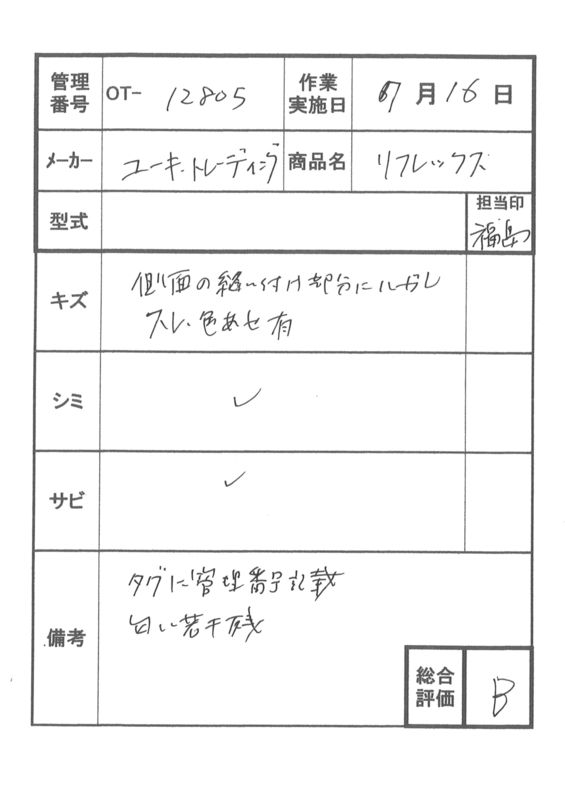 管理番号 OT- 12805 作業実施日 7月16日
メーカー ユーキ・トレーディング 商品名 リフレックス
型式 担当印 福島
キズ 側面の縫い付け部分にハガレ
スレ、色あせ有
シミ ✓
サビ ✓
備考 タグに管理番号記載
匂い若干残
総合評価 B